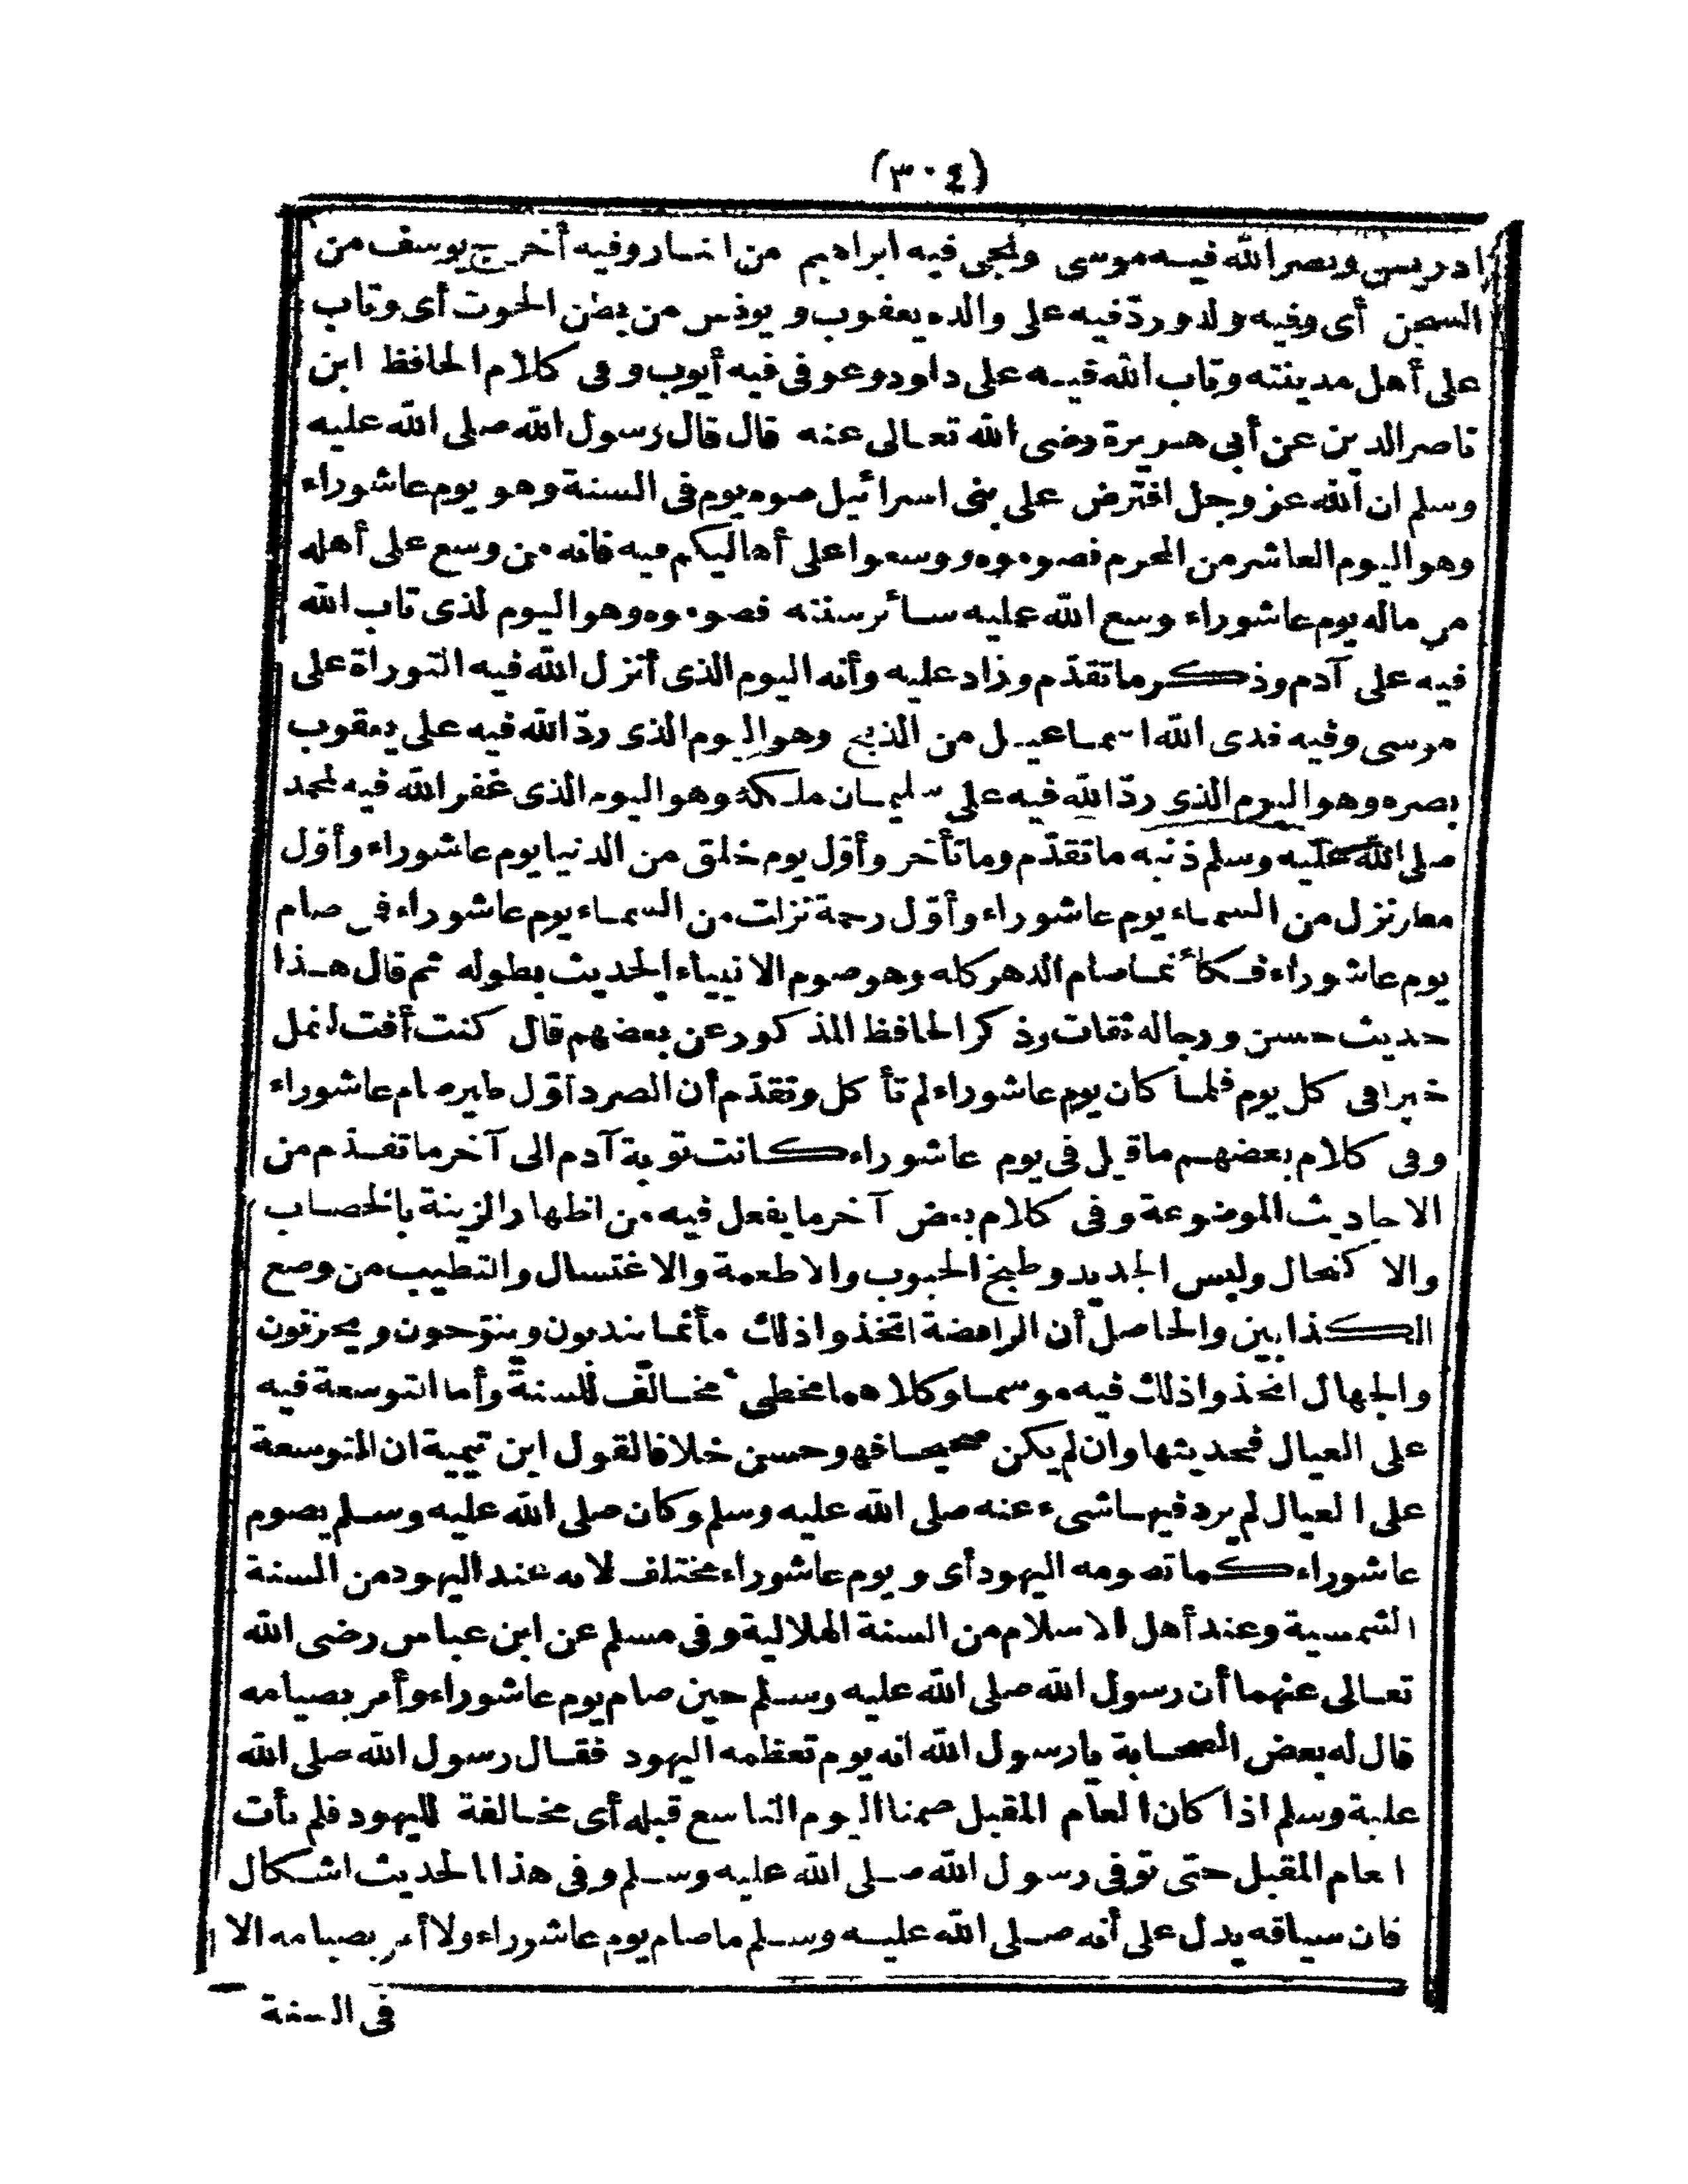 (٣٠٤)
ادريس ونصر الله فيه موسى ونجى فيه ابراهيم من النار وفيه أخرج يوسف من
السجن أى وفيه ولد ورد فيه على والده يعقوب ويونس من بطن الحوت أى وتاب
على أهل مدينته وتاب الله فيه على داود وعوفى فيه أيوب وفى كلام الحافظ ابن
ناصر الدين عن أبى هريرة رضى الله تعالى عنه قال قال رسول الله صلى الله عليه
وسلم ان الله عز وجل افترض على بنى اسرائيل صوم يوم فى السنة وهو يوم عاشوراء
وهو اليوم العاشر من المحرم فصوموه ووسعوا على أهاليكم فيه فانه من وسع على أهله
من ماله يوم عاشوراء وسع الله عليه سائر سنته فصوموه وهو اليوم لذى تاب الله
فيه على آدم وذكر ما تقدّم وزاد عليه وأنه اليوم الذى أنزل الله فيه التوراة على
موسى وفيه فدى الله اسماعيل من الذبح وهو اليوم الذى ردّ الله فيه على يعقوب
بصره وهو اليوم الذى ردّ الله فيه على سليمان ملكه وهو اليوم الذى غفر الله فيه لمحمد
صلى الله عليه وسلم ذنبه ما تقدّم وما تأخر وأوّل يوم خلق من الدنيا يوم عاشوراء وأوّل
مطر نزل من السماء يوم عاشوراء وأوّل رحمة نزلت من السماء يوم عاشوراء فمن صام
يوم عاشوراء فكأنما صام الدهر كله وهو صوم الانبياء الحديث بطوله ثم قال هذا
حديث حسن ورجاله ثقات وذكر الحافظ المذكور عن بعضهم قال كنت أفت لنمل
خبزا فى كل يوم فلما كان يوم عاشوراء لم تأكل وتقدّم أن الصرد أوّل طير صام عاشوراء
وفى كلام بعضهم ما قيل فى يوم عاشوراء كانت توبة آدم الى آخر ما تقدّم من
الاحاديث الموضوعة وفى كلام بعض آخر ما يفعل فيه من اظهار الزينة بالخضاب
والا كتحال ولبس الجديد وطبخ الحبوب والاطعمة والاغتسال والتطيب من وضع
الكذابين والحاصل أن الرافضة اتخذوا ذلك مأتما يندبون وينوّحون ويحزنون
والجهال اتخذوا ذلك فيه موسما وكلاهما مخطئ مخالف للسنة وأما التوسعة فيه
على العيال فحديثها وان لم يكن صحيحا فهو حسن خلافا لقول ابن تيمية ان التوسعة
على العيال لم يرد فيها شىء عنه صلى الله عليه وسلم وكان صلى الله عليه وسلم يصوم
عاشوراء كما تصومه اليهود أى ويوم عاشوراء مختلف لانه عند اليهود من السنة
الشمسية وعند أهل الاسلام من السنة الهلالية وفى مسلم عن ابن عباس رضى الله
تعالى عنهما أن رسول الله صلى الله عليه وسلم حين صام يوم عاشوراء وأمر بصيامه
قال له بعض الصحابة يا رسول الله انه يوم تعظمه اليهود فقال رسول الله صلى الله
عليه وسلم اذا كان العام المقبل صمنا اليوم التاسع قبله أى مخالفة لليهود فلم يأت
العام المقبل حتى توفى رسول الله صلى الله عليه وسلم وفى هذا الحديث اشكال
فان سياقه يدل على أنه صلى الله عليه وسلم ما صام يوم عاشوراء ولا أمر بصيامه الا
فى السنة